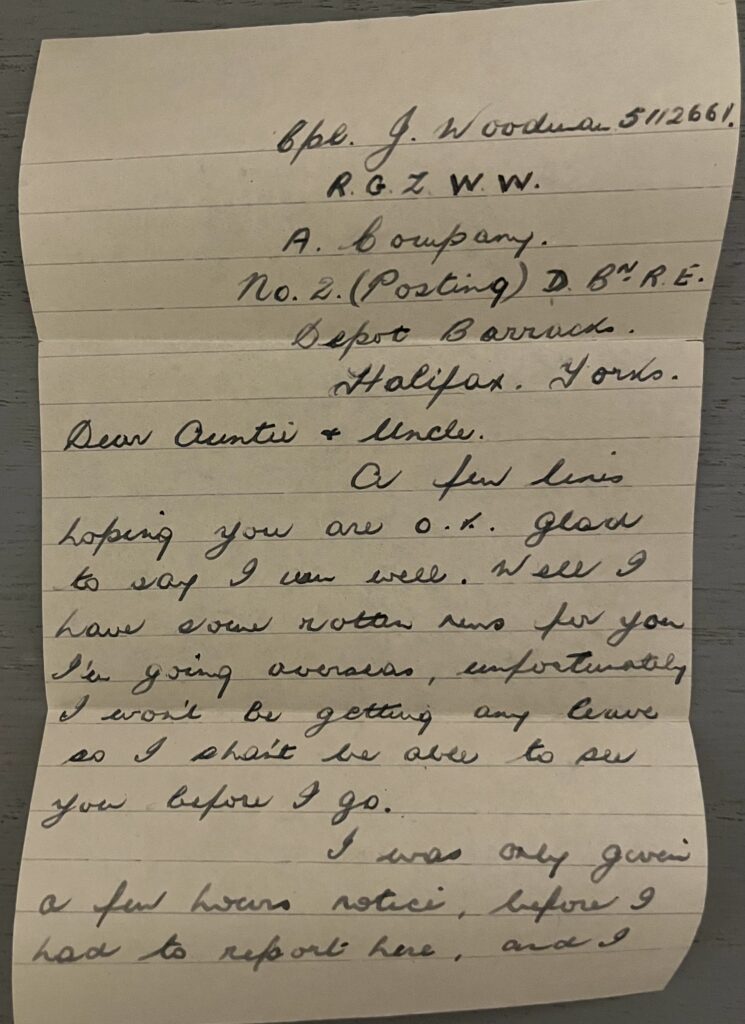 Cpl. J. Woodman 5112661.
R.G.Z. W.W.
A. Company.
No. 2. (Posting) D. Bⁿ R.E.
Depot Barracks.
Halifax. Yorks.
Dear Auntie & Uncle.
A few lines
hoping you are o.k. glad
to say I am well. Well I
have some rotten news for you
I'm going overseas, unfortunately
I won't be getting any leave
so I shan't be able to see
you before I go.
I was only given
a few hours notice, before I
had to report here, and I